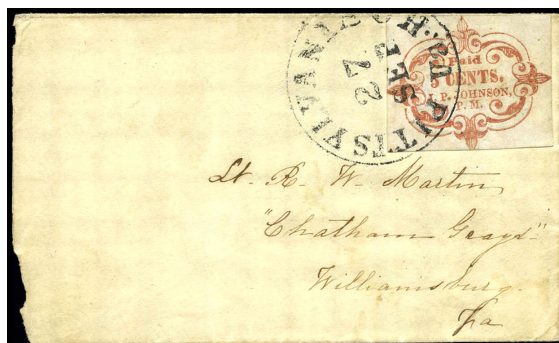 PITTSYLVANIA C.H. Va
27
SEP
Paid
5 CENTS.
J. P. JOHNSON,
P. M.
Lt. R. W. Martin,
"Chatham Grays"
Williamsburg.
Va